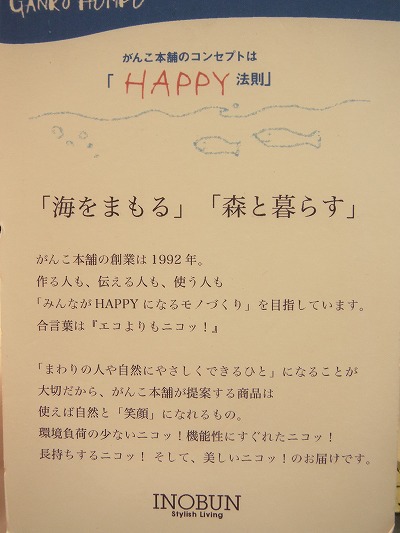 GANKO HOMPO
がんこ本舗のコンセプトは
「HAPPY法則」
「海をまもる」「森と暮らす」
がんこ本舗の創業は1992年。
作る人も、伝える人も、使う人も
「みんながHAPPYになるモノづくり」を目指しています。
合言葉は『エコよりもニコッ！』
「まわりの人や自然にやさしくできるひと」になることが
大切だから、がんこ本舗が提案する商品は
使えば自然と「笑顔」になれるもの。
環境負荷の少ないニコッ！機能性にすぐれたニコッ！
長持ちするニコッ！ そして、美しいニコッ！のお届けです。
INOBUN
Stylish Living